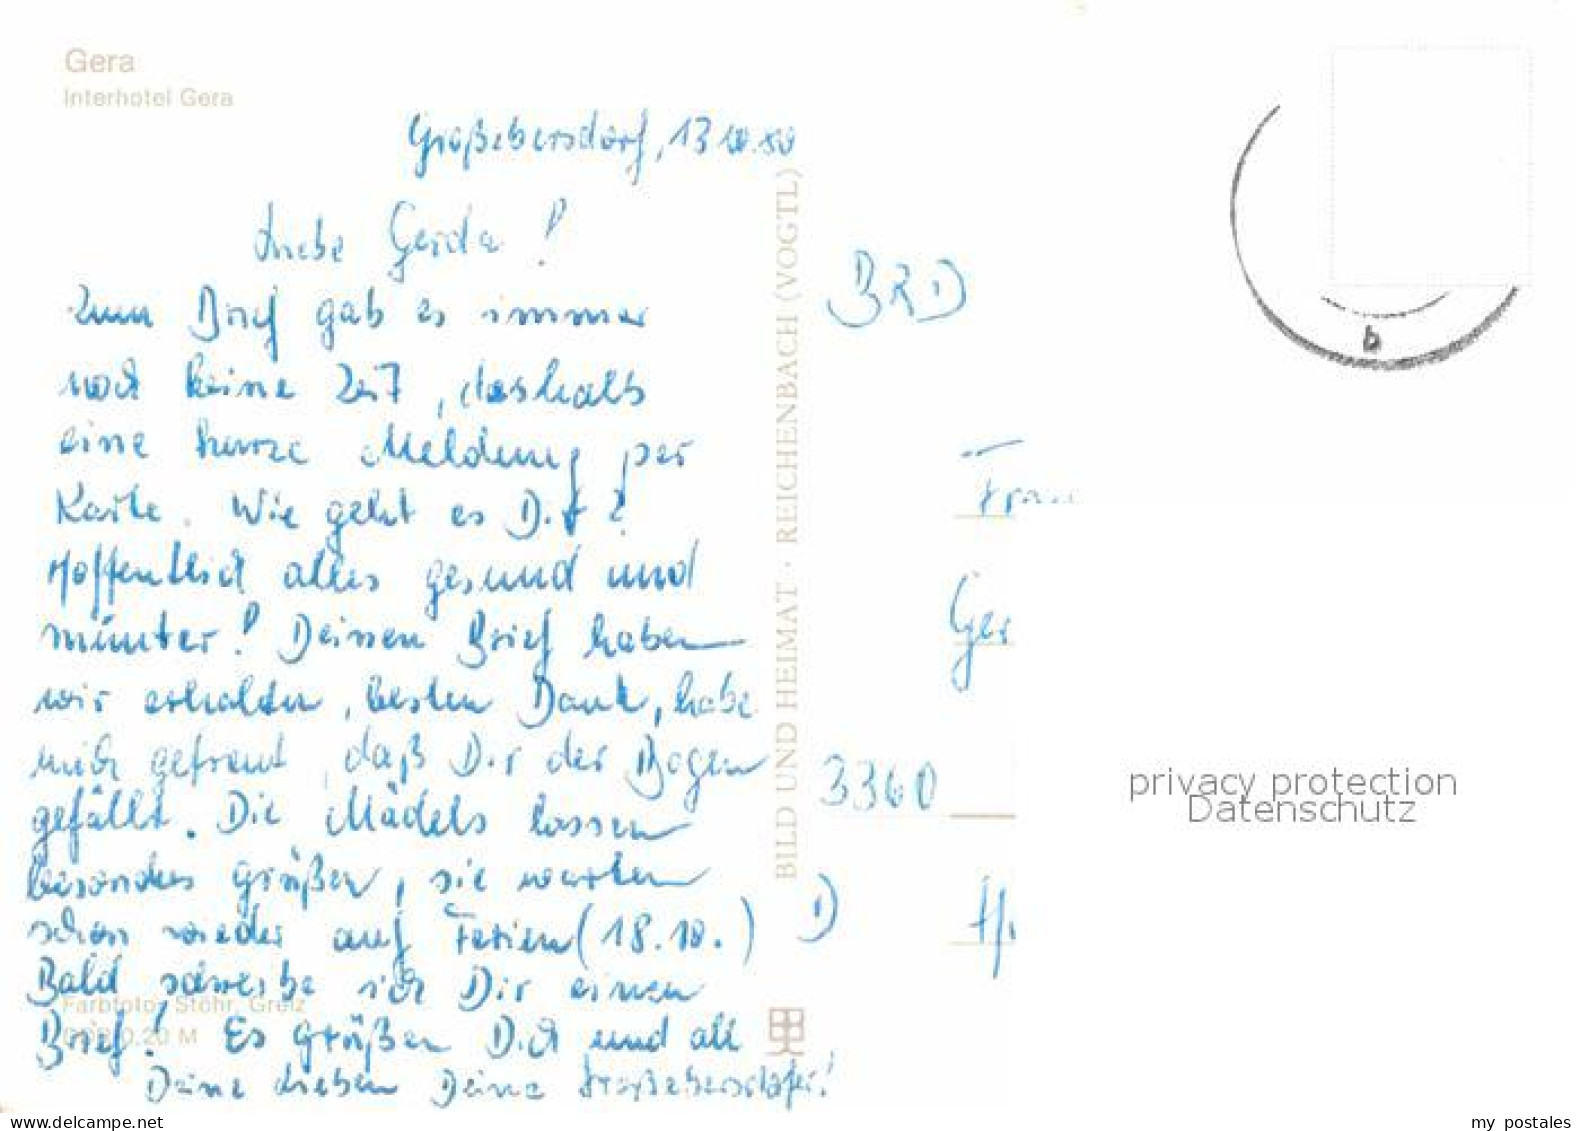 Gera
Interhotel Gera
Großebersdorf, 13.10.80
Liebe Gerda!
Zum Brief gab es immer
noch keine Zeit, deshalb
eine kurze Meldung per
Karte. Wie geht es Dir?
Hoffentlich alles gesund und
munter! Deinen Brief haben
wir erhalten, besten Dank, habe
mich gefreut, daß Dir der Bogen
gefällt. Die Mädels lassen
besonders grüßen, sie warten
schon wieder auf Ferien (18.10.)
Bald schreibe ich Dir einen
Brief! Es grüßen Dich und all
Deine Lieben Deine Großebersdorfer!
Farbfoto: Stöhr, Greiz
0,20 M
BILD UND HEIMAT · REICHENBACH (VOGTL)
BRD
b
Frau
Ger
3360
D
privacy protection
Datenschutz
delcampe.net
my_postales